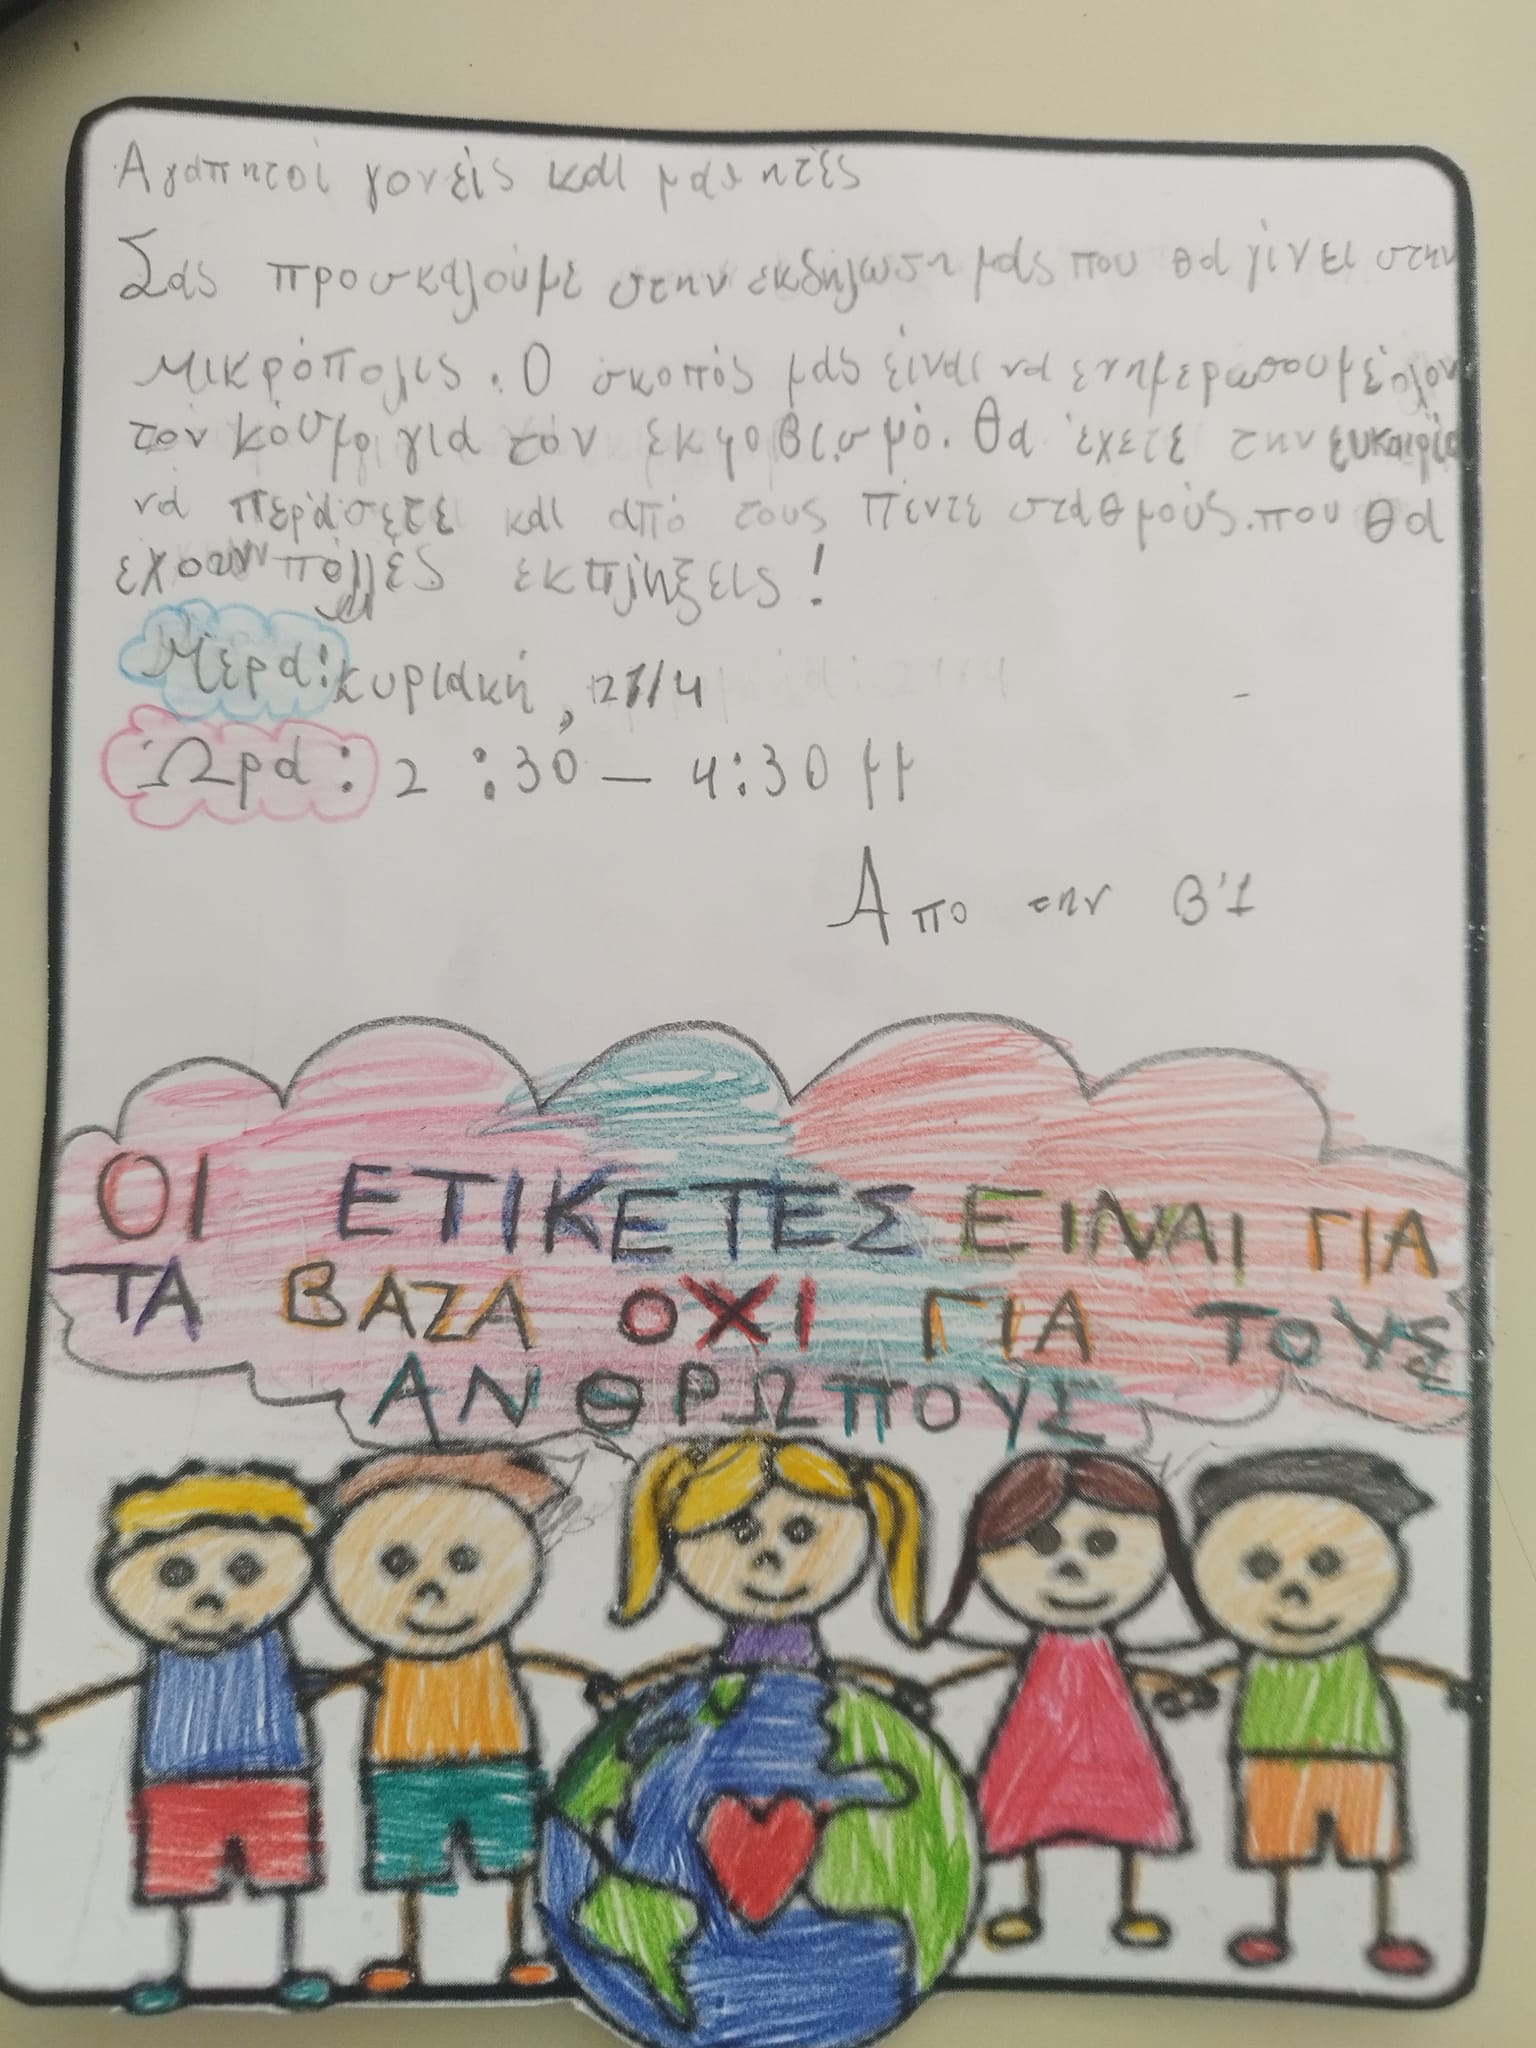 Αγαπητοί γονείς και μαθητές
Σας προσκαλούμε στην εκδήλωση μας που θα γίνει στην
Μικρόπολις. Ο σκοπός μας είναι να ενημερώσουμε όλον
τον κόσμο για τον εκφοβισμό. Θα έχετε την ευκαιρία
να περάσετε και από τους πέντε σταθμούς. που θα
έχουν πολλές εκπλήξεις!
Μέρα: κυριακή, 21/4
Ώρα: 2 :30 – 4:30 μμ
Απο την Β'1
ΟΙ ΕΤΙΚΕΤΕΣ ΕΙΝΑΙ ΓΙΑ
ΤΑ ΒΑΖΑ ΟΧΙ ΓΙΑ ΤΟΥΣ
ΑΝΘΡΩΠΟΥΣ